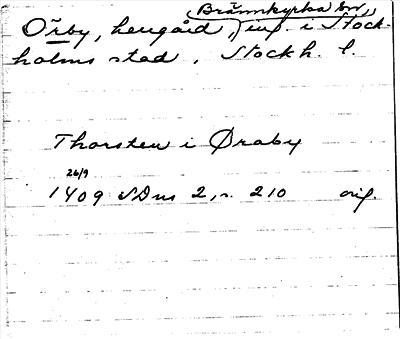 Örby, herrgård, (Brännkyrka sn,) inf. i Stock-
holms stad, Stockh. l.
Thorsten i Øraby
26/9
1409 SDns 2, s. 210 orig.